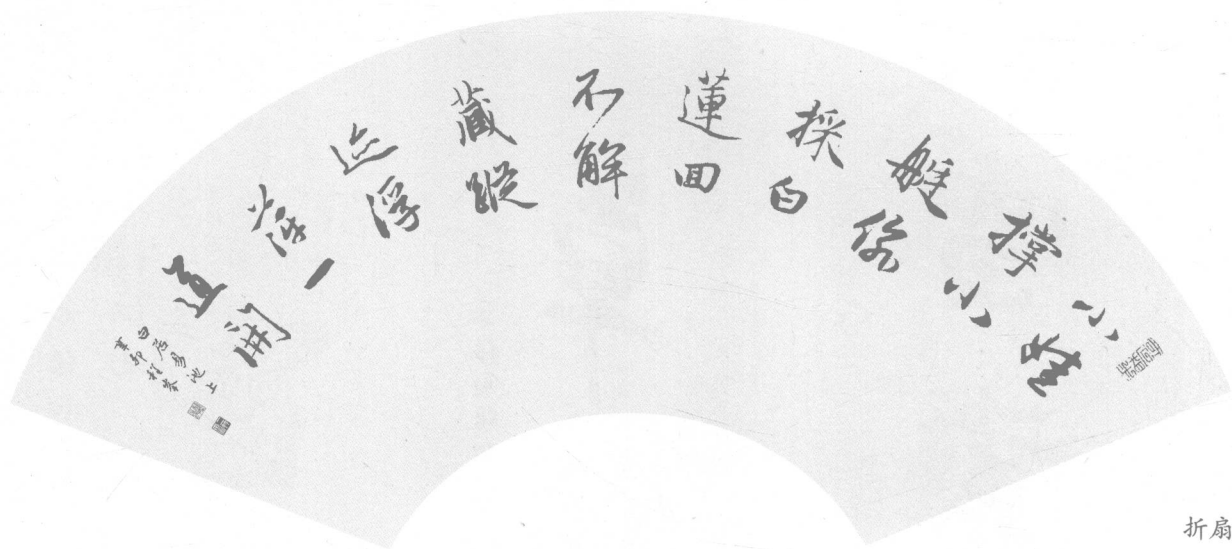 小娃
撑小
艇偷
採白
蓮回
不解
藏蹤
迹浮
萍一
道開
白居易池上
辛卯
折扇